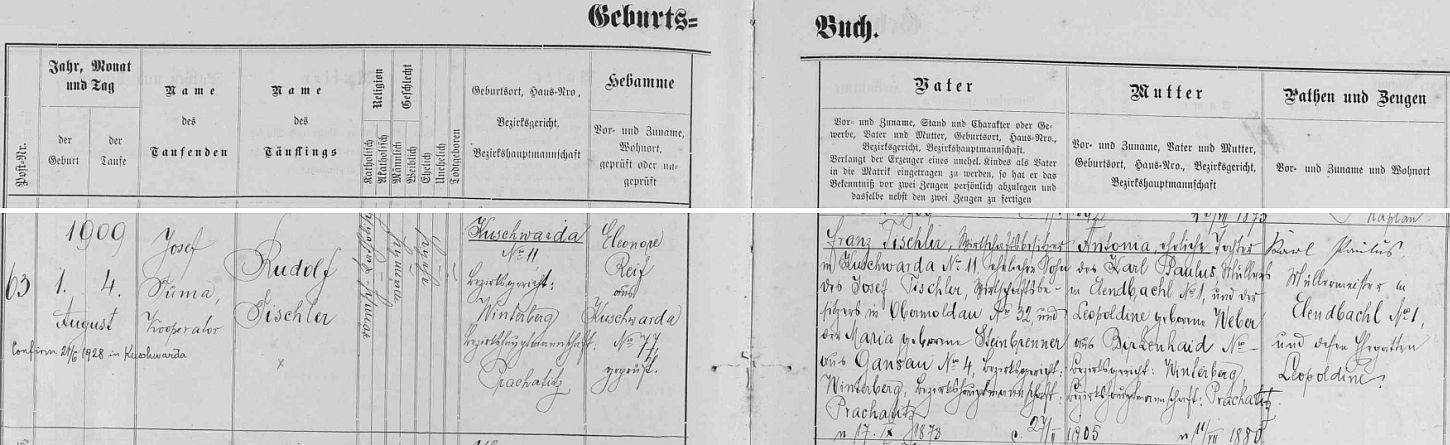 Geburts=
Buch.
Post-Nr.
Jahr, Monat
und Tag
der
Geburt
der
Taufe
Name
des
Taufenden
Name
des
Täuflings
Religion
Katholisch
Akatholisch
Geschlecht
Männlich
Weiblich
Ehelich
Unehelich
Todtgeboren
Geburtsort, Haus-Nro.,
Bezirksgericht,
Bezirkshauptmannschaft
Hebamme
Vor- und Zuname,
Wohnort,
geprüft oder un-
geprüft
Vater
Vor- und Zuname, Stand und Charakter oder Ge-
werbe, Vater und Mutter, Geburtsort, Haus-Nro.,
Bezirksgericht, Bezirkshauptmannschaft.
Verlangt der Erzeuger eines unehel. Kindes als Vater
in die Matrik eingetragen zu werden, so hat er das
Bekenntniß vor zwei Zeugen persönlich abzulegen und
dasselbe nebst den zwei Zeugen zu fertigen
Mutter
Vor- und Zuname, Vater und Mutter,
Geburtsort, Haus-Nro., Bezirksgericht,
Bezirkshauptmannschaft
Pathen und Zeugen
Vor- und Zuname und Wohnort
63
1909
1. 4.
August
Confirm 24/6 1928 in Kuschwarda
Josef
Tůma,
Kooperator
Rudolf
Tischler
Kuschwarda
No 11
Bezirksgericht:
Winterberg
Bezirkshauptmannschaft:
Prachatitz
Eleonore
Reif
aus
Kuschwarda
No 77
geprüft.
Franz Tischler, Wirtschaftsbesitzer
in Kuschwarda No 11, ehelicher Sohn
des Josef Tischler, Wirtschaftsbe-
sitzers in Obermoldau No 32, und
der Maria geborene Steinbrenner
aus Gansau No 4, Bezirksgericht:
Winterberg, Bezirkshauptmannschaft:
Prachatitz
n 17. 1873
Antonia, eheliche Tochter
des Karl Paulus, Müllers
in Elendbachl No 1, und der
Leopoldine geborene Weber
aus No -
Bezirksgericht: Winterberg
Bezirkshauptmannschaft: Prachatitz.
c. 27/ 1905 n 11/VII 1880
Kaplan.
Karl Paulus,
Müllermeister in
Elendbachl No 1,
und dessen Ehegattin
Leopoldine.